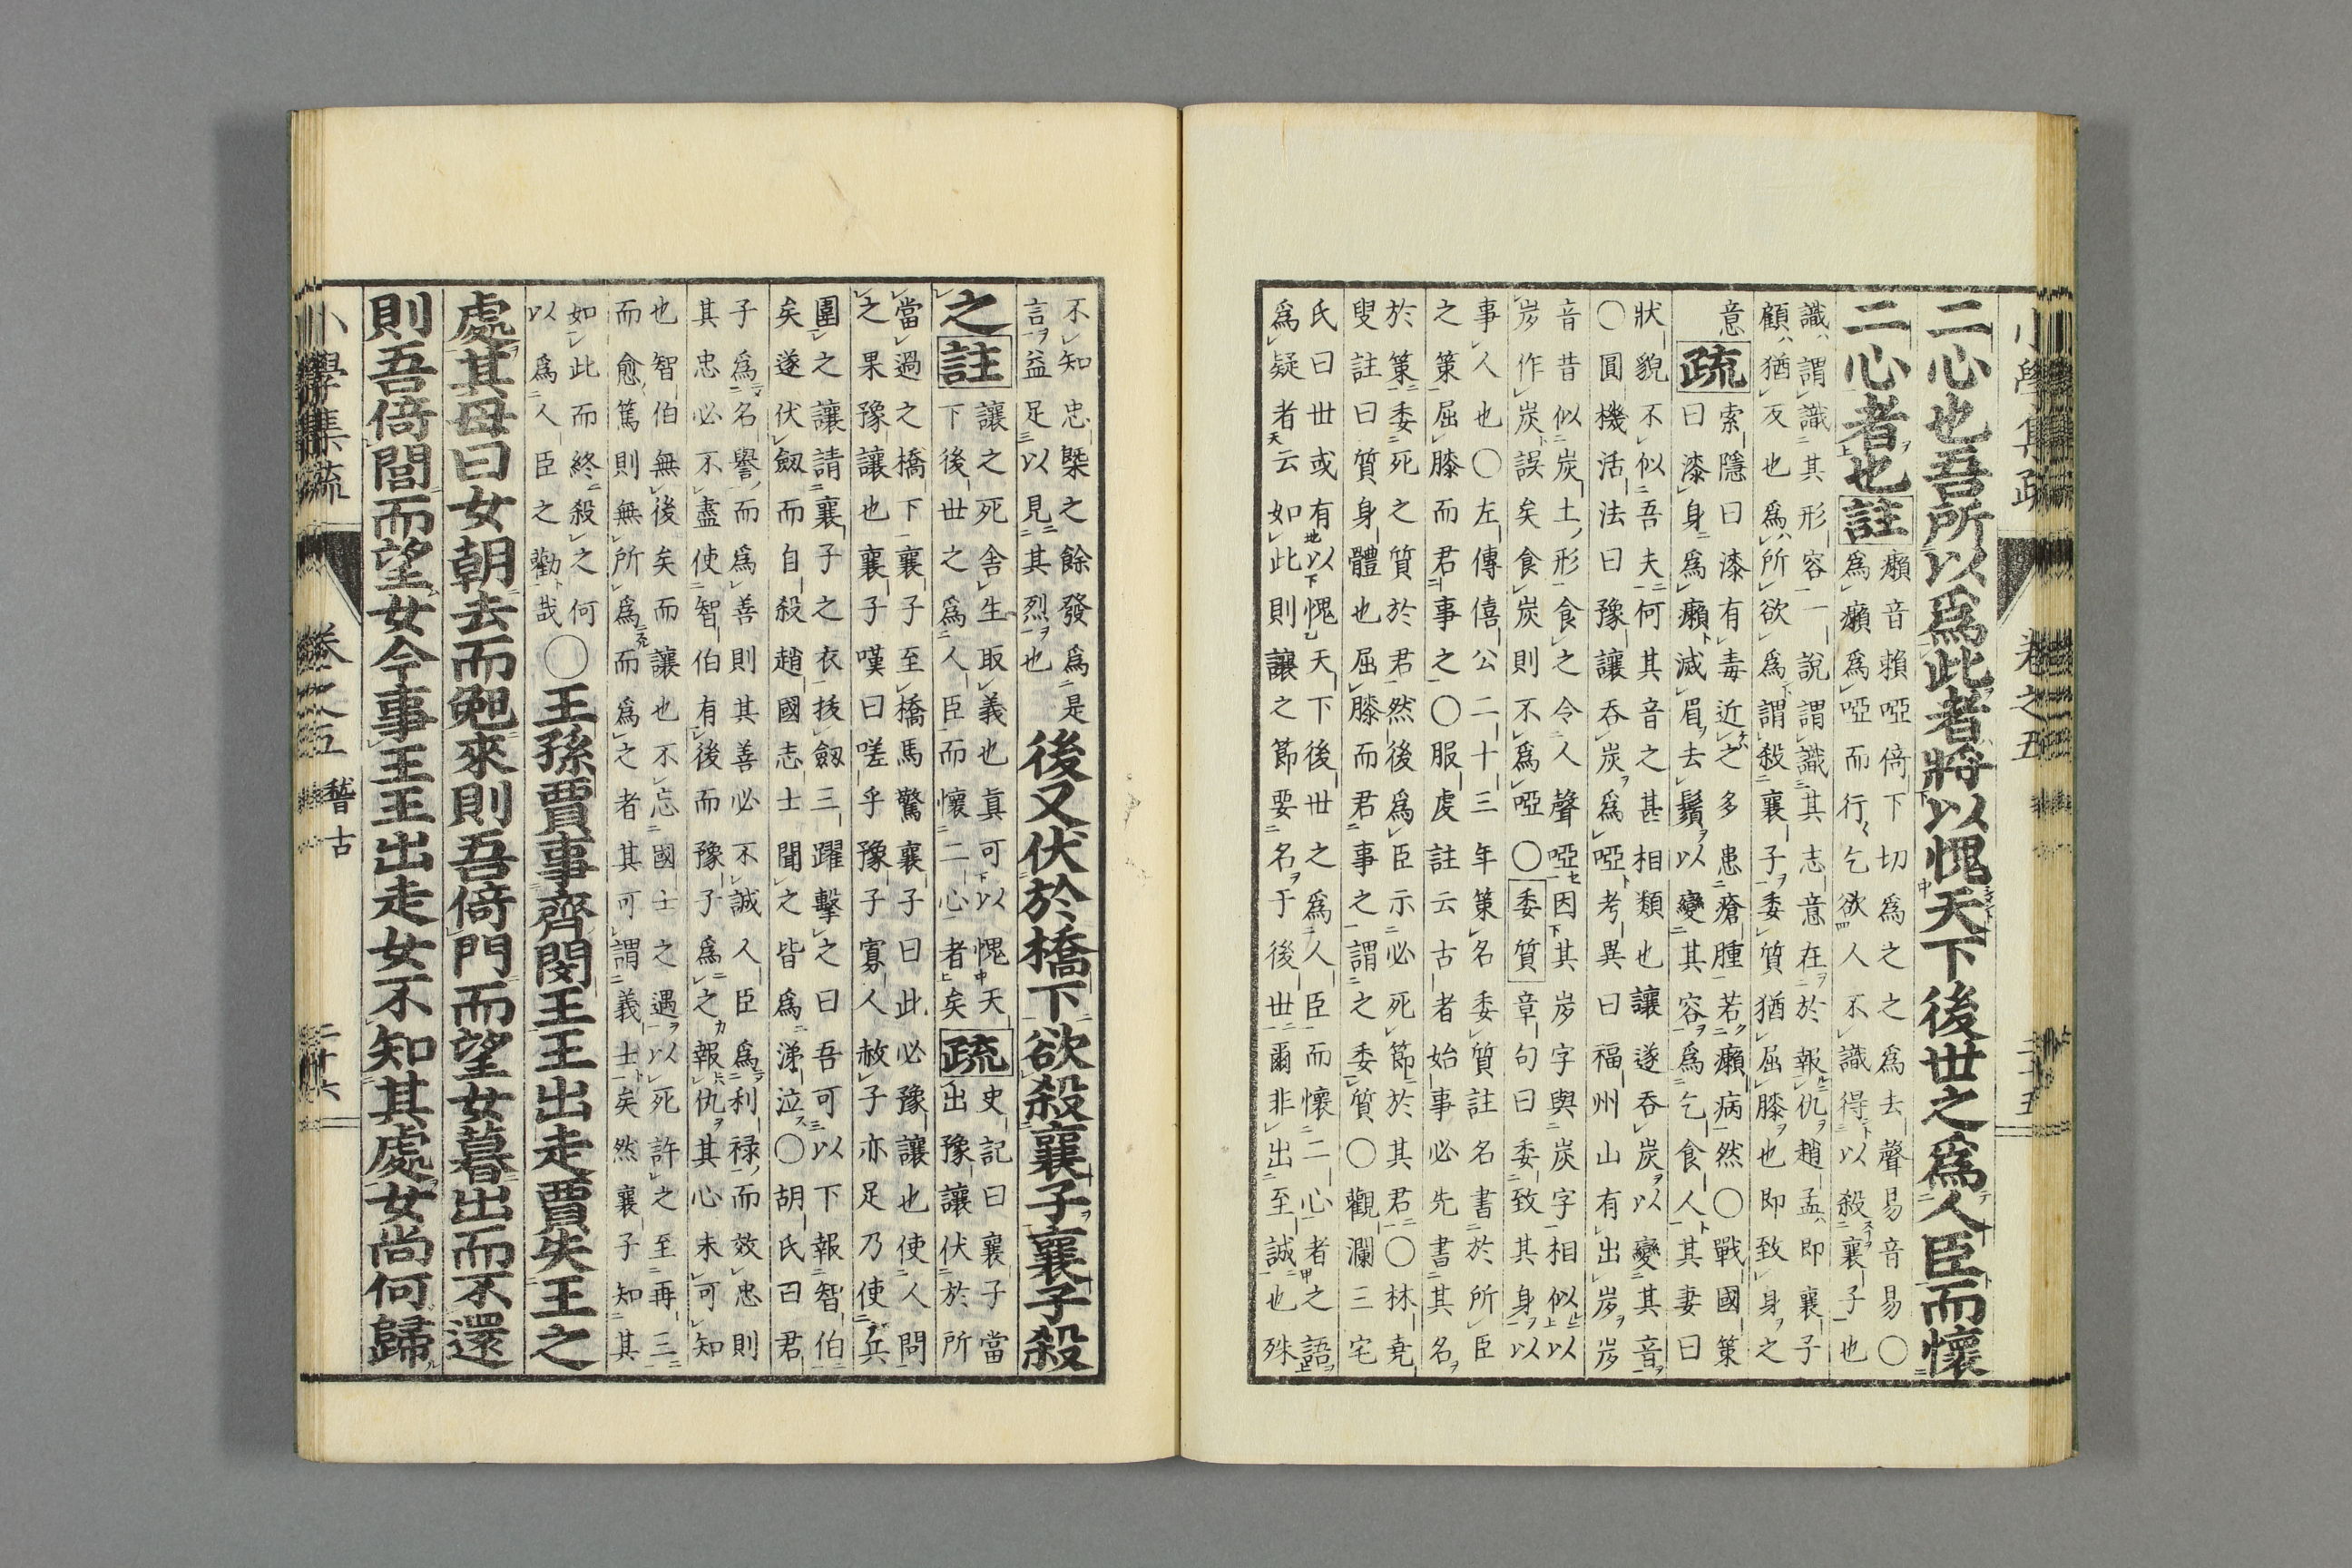 小學集疏
卷之五
二十五
二心也吾所以爲此者將以愧天下後世之爲人臣而懷
二心者也註癩音賴啞倚下切爲之之爲去聲易音易〇
爲癩爲啞而行乞欲人不識得以殺襄子也
識謂識其形容一說謂識其志意在於報仇趙孟即襄子
顧猶反也爲所欲爲謂殺襄子委質猶屈膝也即致身之
意疏索隱曰漆有毒近之多患瘡腫若癩病然〇戰國策
曰漆身爲癩滅眉去鬚以變其容爲乞食人其妻曰
狀貌不似吾夫何其音之甚相類也讓遂吞炭以變其音
〇圓機活法曰豫讓吞炭爲啞考異曰福州山有出炭炭
音昔似炭土形食之令人聲啞因其炭字與炭字相似以
炭作炭誤矣食炭則不爲啞〇委質章句曰委致其身以
事人也〇左傳僖公二十三年策名委質註名書於所臣
之策屈膝而君事之〇服虔註云古者始事必先書其名
於策委死之質於君然後爲臣示必死節於其君〇林堯
叟註曰質身體也屈膝而君事之謂之委質〇觀瀾三宅
氏曰世或有以愧天下後世之爲人臣而懷二心者之語
爲疑者云如此則讓之節要名于後世爾非出至誠也殊
不知忠槩之餘發爲是
言益足以見其烈也後又伏於橋下欲殺襄子襄子殺
之註讓之死舍生取義也眞可以愧天
下後世之爲人臣而懷二心者矣疏史記曰襄子當
出豫讓伏於所
當過之橋下襄子至橋馬驚襄子曰此必豫讓也使人問
之果豫讓也襄子嘆曰嗟乎豫子寡人赦子亦足乃使兵
圍之讓請襄子之衣拔劔三躍擊之曰吾可以下報智伯
矣遂伏劔而自殺趙國志士聞之皆爲涕泣〇胡氏曰君
子爲名譽而爲善則其善必不誠人臣爲利禄而效忠則
其忠必不盡使智伯有後而豫子爲之報仇其心未可知
也智伯無後矣而讓也不忘國士之遇以死許之至再三
而愈篤則無所爲而爲之者其可謂義士矣然襄子知其
如此而終殺之何
以爲人臣之勸哉〇王孫賈事齊閔王王出走賈失王之
處其母曰女朝去而晩來則吾倚門而望女暮出而不還
則吾倚閭而望女今事王王出走女不知其處女尚何歸
小學集疏
卷之五
稽古
二十六